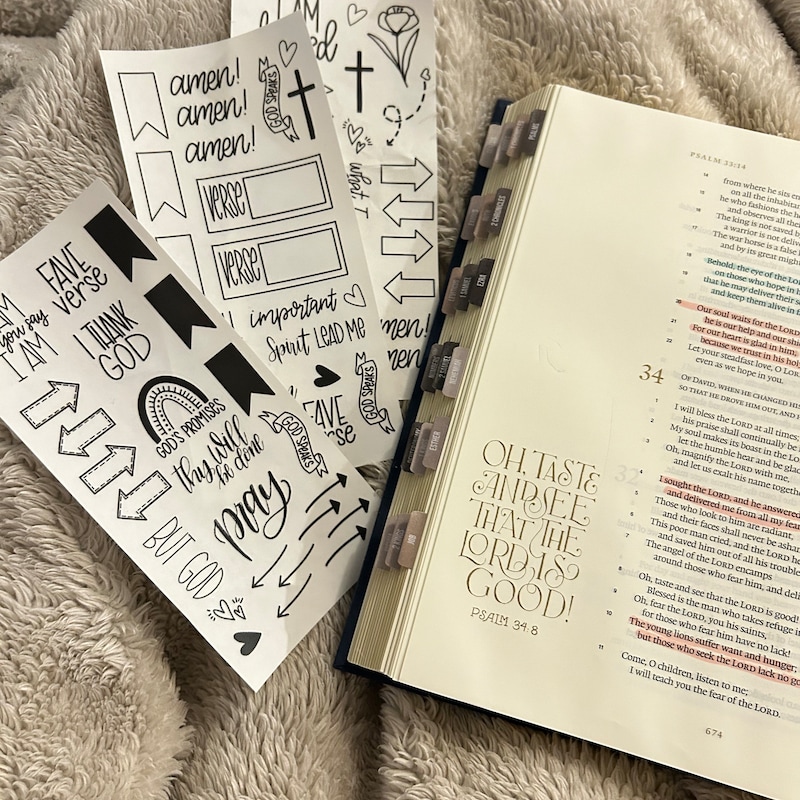 I AM
amen!
amen!
amen!
GOD SPEAKS
VERSE
VERSE
important
Spirit LEAD ME
GOD SPEAKS
FAVE
what I
FAVE
verse
you say
I AM
I THANK
GOD
GOD'S PROMISES
thy will
be done
GOD SPEAKS
pray
BUT GOD
PSALMS
2 CHRONICLES
1 SAMUEL
EZRA
2 SAMUEL
NEHEMIAH
ESTHER
JOB
OH, TASTE
AND SEE
THAT THE
LORD IS
GOOD!
PSALM 34:8
PSALM 33:14
14 from where he sits en
15 on all the inhabitan
he who fashions the h
and observes all the
The king is not saved b
a warrior is not deliv
17 The war horse is a false
and by its great migh
18 Behold, the eye of the LOR
on those who hope in
19 that he may deliver their s
and keep them alive in f
20 Our soul waits for the LORD
he is our help and our shi
21 For our heart is glad in him,
because we trust in his hol
22 Let your steadfast love, O LOR
even as we hope in you.
34 OF DAVID, WHEN HE CHANGED HI
SO THAT HE DROVE HIM OUT, AND
1 I will bless the LORD at all times;
his praise shall continually be
2 My soul makes its boast in the LO
let the humble hear and be gla
3 Oh, magnify the LORD with me,
and let us exalt his name togethe
4 I sought the LORD, and he answered
and delivered me from all my fear
5 Those who look to him are radiant,
and their faces shall never be asha
6 This poor man cried, and the LORD he
and saved him out of all his trouble
7 The angel of the LORD encamps
around those who fear him, and deli
8 Oh, taste and see that the LORD is good!
Blessed is the man who takes refuge i
9 Oh, fear the LORD, you his saints,
for those who fear him have no lack!
10 The young lions suffer want and hunger;
but those who seek the LORD lack no go
11 Come, O children, listen to me;
I will teach you the fear of the LORD.
674